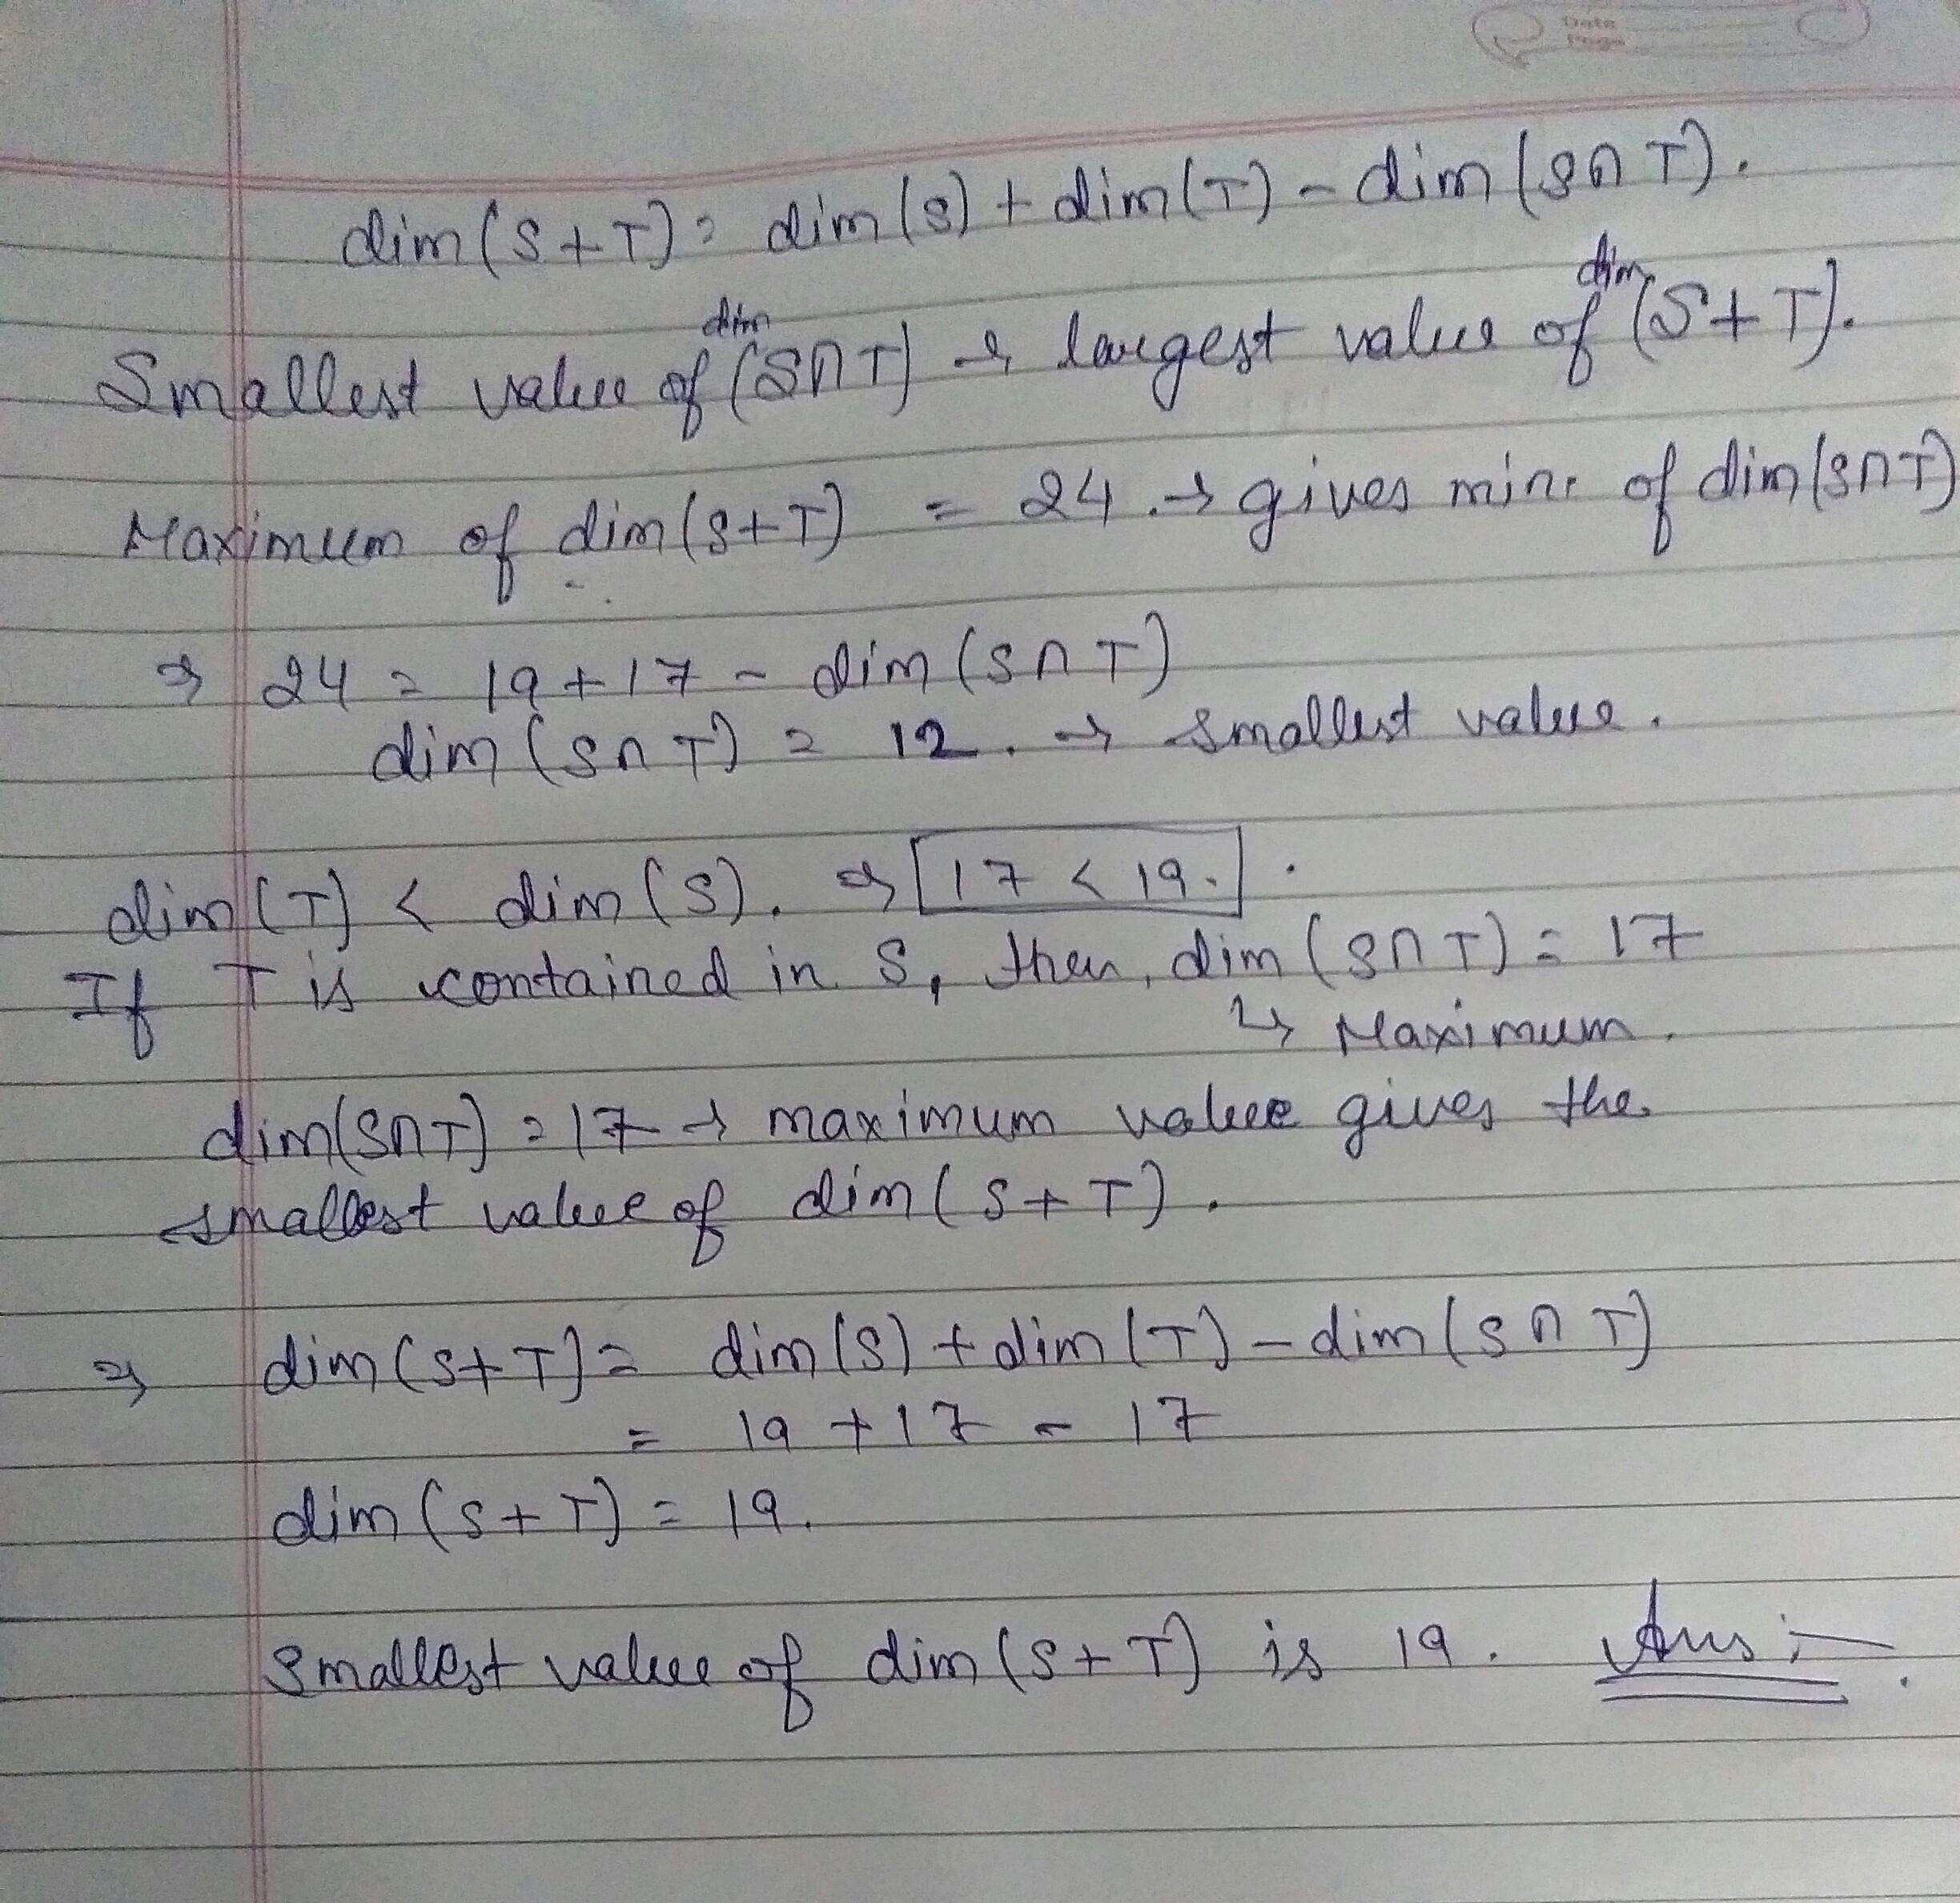 Date
Page
dim(S+T) = dim(S) + dim(T) - dim(S∩T).
Smallest value of dim(S∩T) → largest value of dim(S+T).
Maximum of dim(S+T) = 24 → gives min. of dim(S∩T)
⇒ 24 = 19+17 - dim(S∩T)
dim(S∩T) = 12. → smallest value.
dim(T) < dim(S). ⇒ 17 < 19.
If T is contained in S, then, dim(S∩T) = 17
↳ Maximum.
dim(S∩T) = 17 → maximum value gives the
smallest value of dim(S+T).
⇒ dim(S+T) = dim(S) + dim(T) - dim(S∩T)
= 19 + 17 - 17
dim(S+T) = 19.
Smallest value of dim(S+T) is 19. Ans:-